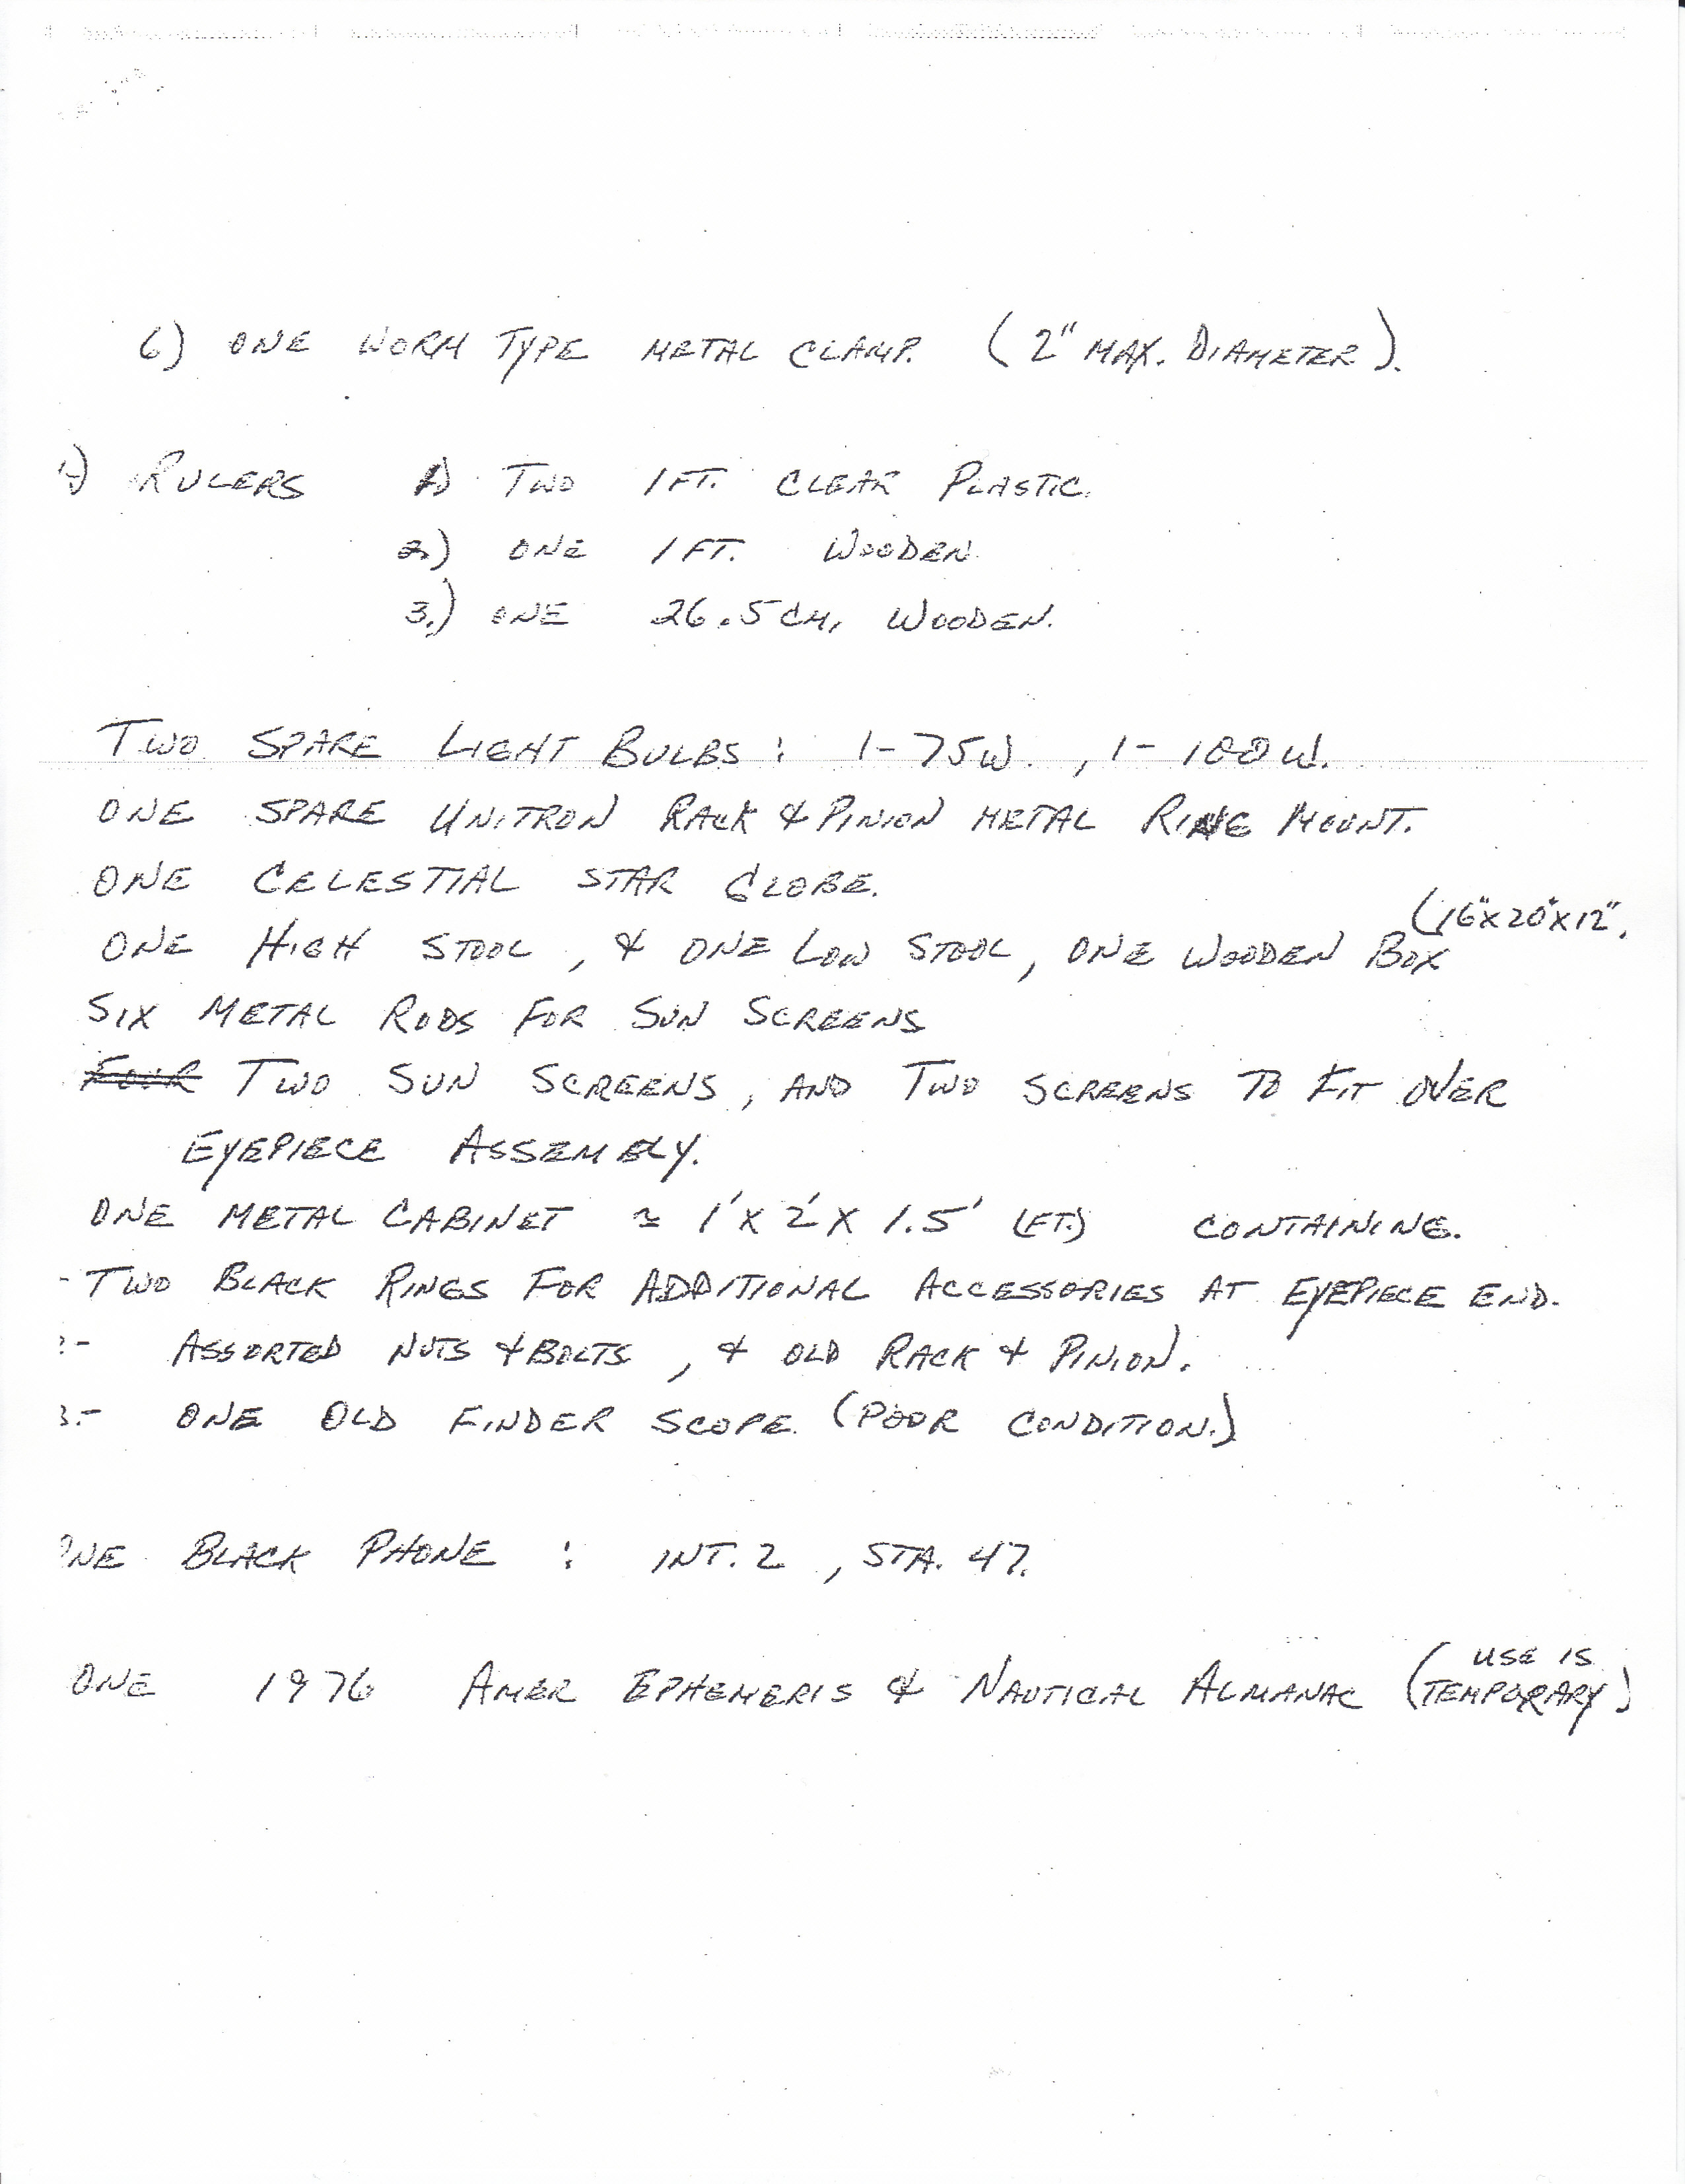 6) ONE WORM TYPE METAL CLAMP. (2" MAX. DIAMETER).
RULERS 1) TWO 1 FT. CLEAR PLASTIC.
2.) ONE 1 FT. WOODEN
3.) ONE 26.5 CM, WOODEN.
TWO SPARE LIGHT BULBS: 1-75W., 1-100W.
ONE SPARE UNITRON RACK & PINION METAL RING MOUNT.
ONE CELESTIAL STAR GLOBE.
ONE HIGH STOOL, & ONE LOW STOOL, ONE WOODEN BOX (16"X20"X12",
SIX METAL RODS FOR SUN SCREENS
FOUR TWO SUN SCREENS, AND TWO SCREENS TO FIT OVER
EYEPIECE ASSEMBLY.
ONE METAL CABINET ≈ 1'X2'X1.5' (FT.) CONTAINING.
- TWO BLACK RINGS FOR ADDITIONAL ACCESSORIES AT EYEPIECE END.
- ASSORTED NUTS & BOLTS, & OLD RACK & PINION.
3.- ONE OLD FINDER SCOPE. (POOR CONDITION.)
ONE BLACK PHONE: INT. 2, STA. 47.
ONE 1976 AMER EPHEMERIS & NAUTICAL ALMANAC (USE IS TEMPORARY)